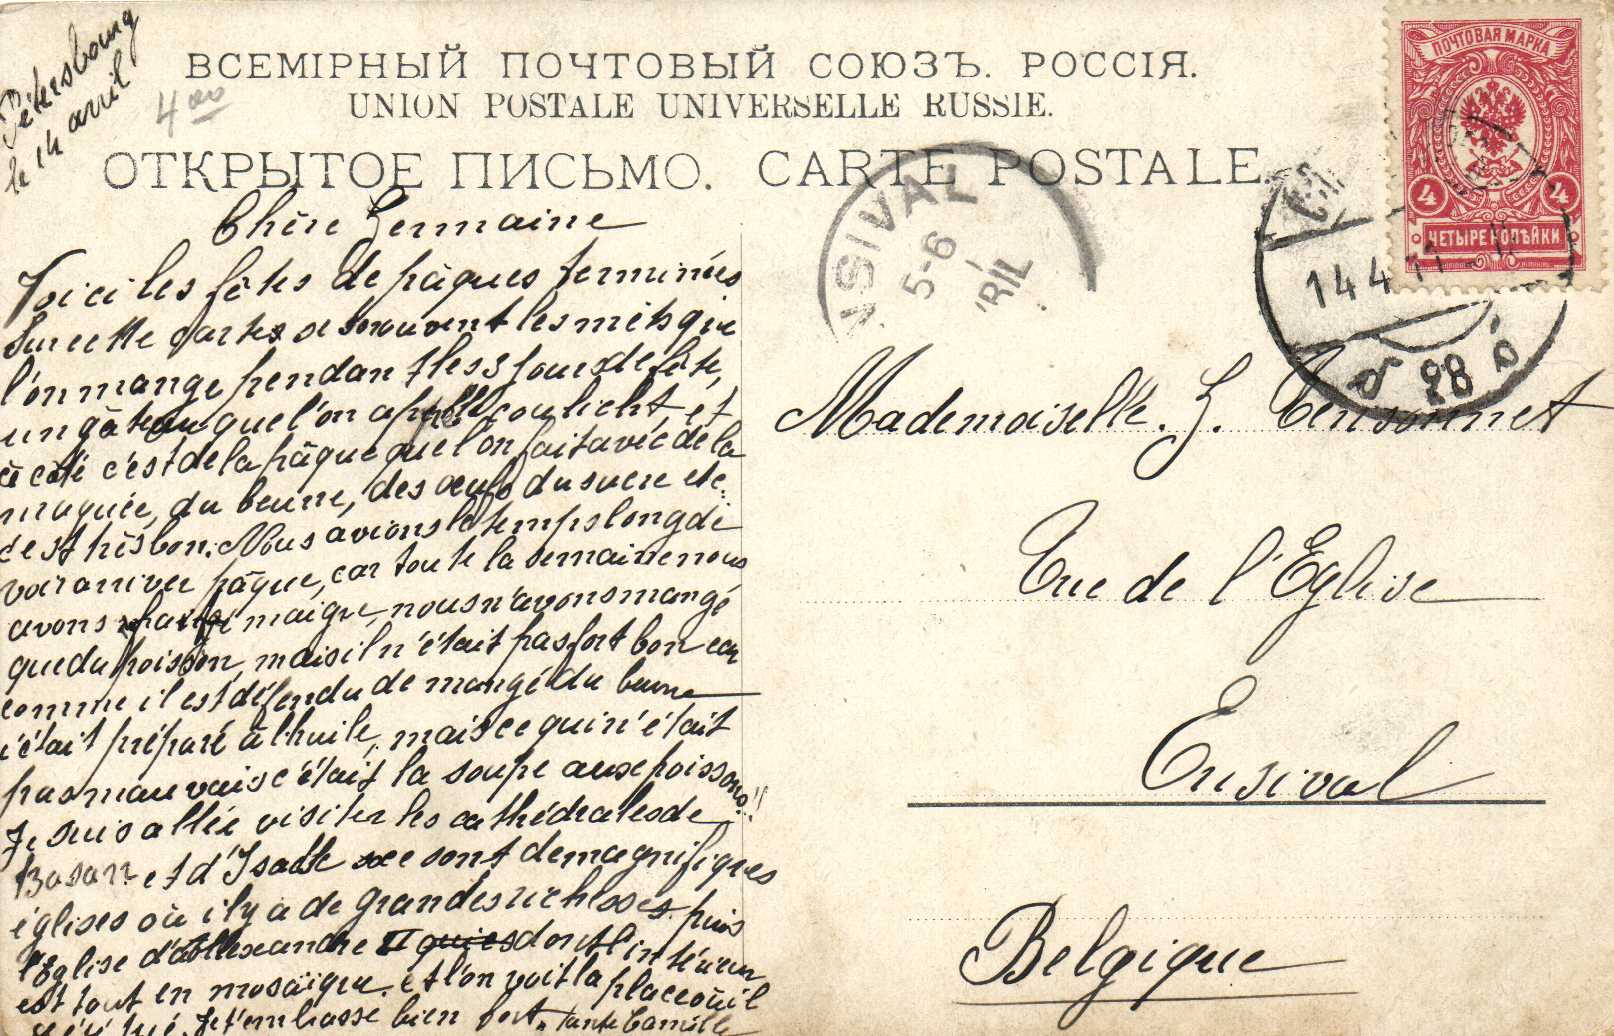 Pétersbourg
le 14 avril
400
ВСЕМІРНЫЙ ПОЧТОВЫЙ СОЮЗЪ. РОССІЯ.
UNION POSTALE UNIVERSELLE RUSSIE.
ОТКРЫТОЕ ПИСЬМО. CARTE POSTALE.
ПОЧТОВАЯ МАРКА
4 4
ЧЕТЫРЕ КОПѢЙКИ
NSIVAL
5-6
RIL
14 4 11
28
Chère Germaine
Voici les fêtes de pâques terminées
Sur cette carte se trouvent les mets que
l'on mange pendant les 3 jours de fête,
un gâteau que l'on appelle coulicht, et
à côté c'est de la pâque que l'on fait avec de la
maquée, du beurre, des œufs du sucre etc.
c'est très bon. Nous avions le temps long de
voir arriver pâque, car toute la semaine nous
avons fait maigre, nous n'avons mangé
que du poisson, mais il n'était pas fort bon car
comme il est défendu de mangé du beurre
c'était préparé à l'huile, mais ce qui n'était
pas mauvais c'était la soupe aux poissons!!
Je suis allée visiter les cathédrales de
Kasan et d'Isaak ce sont de magnifiques
églises où il y a de grandes richesses puis
l'Eglise d'Allexandre II dont l'intérieur
est tout en mosaïque. et l'on voit la place où il
a été tué. Je t'embrasse bien fort. Tante Camille
Mademoiselle. G.
Rue de l'Eglise
Ensival
Belgique